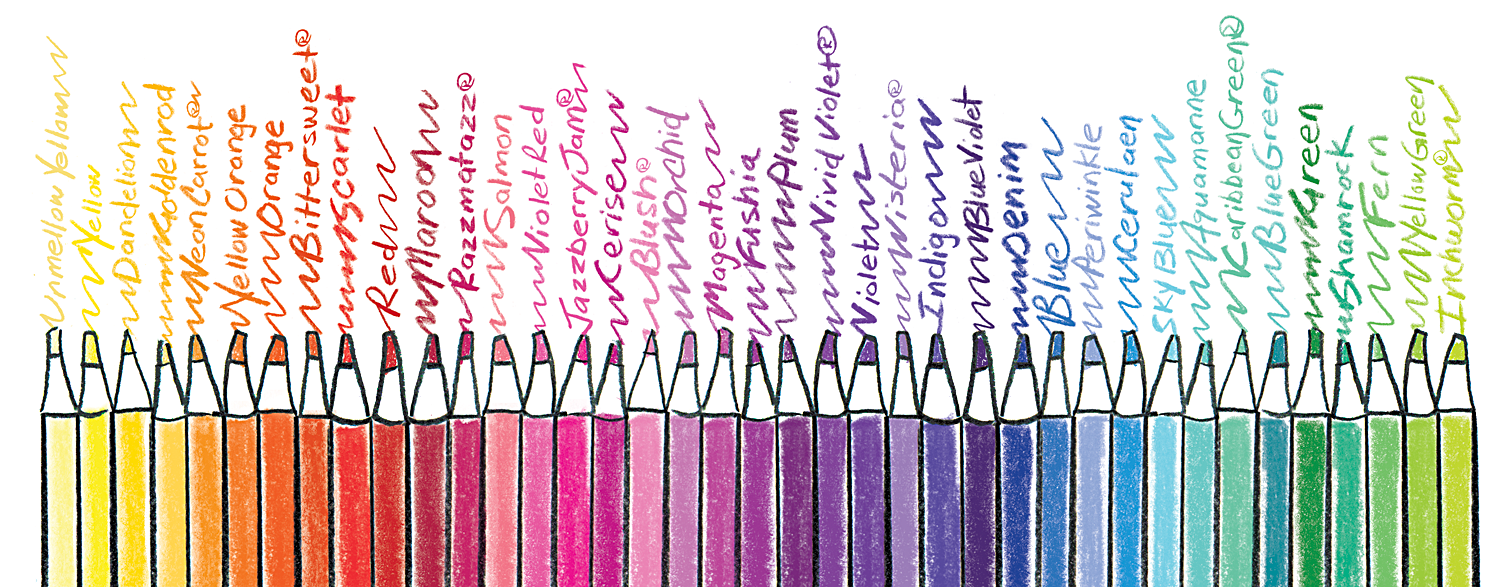 Unmellow Yellow
Yellow
Dandelion
Goldenrod
Neon Carrot®
Yellow Orange
Orange
Bittersweet®
Scarlet
Red
Maroon
Razzmatazz®
Salmon
Violet Red
Jazzberry Jam®
Cerise
Blush®
Orchid
Magenta
Fushia
Plum
Vivid Violet®
Violet
Wisteria®
Indigo
Blue Violet
Denim
Blue
Periwinkle
Cerulaen
Sky Blue
Aquamarine
Caribbean Green®
Blue Green
Green
Shamrock
Fern
Yellow Green
Inchworm®